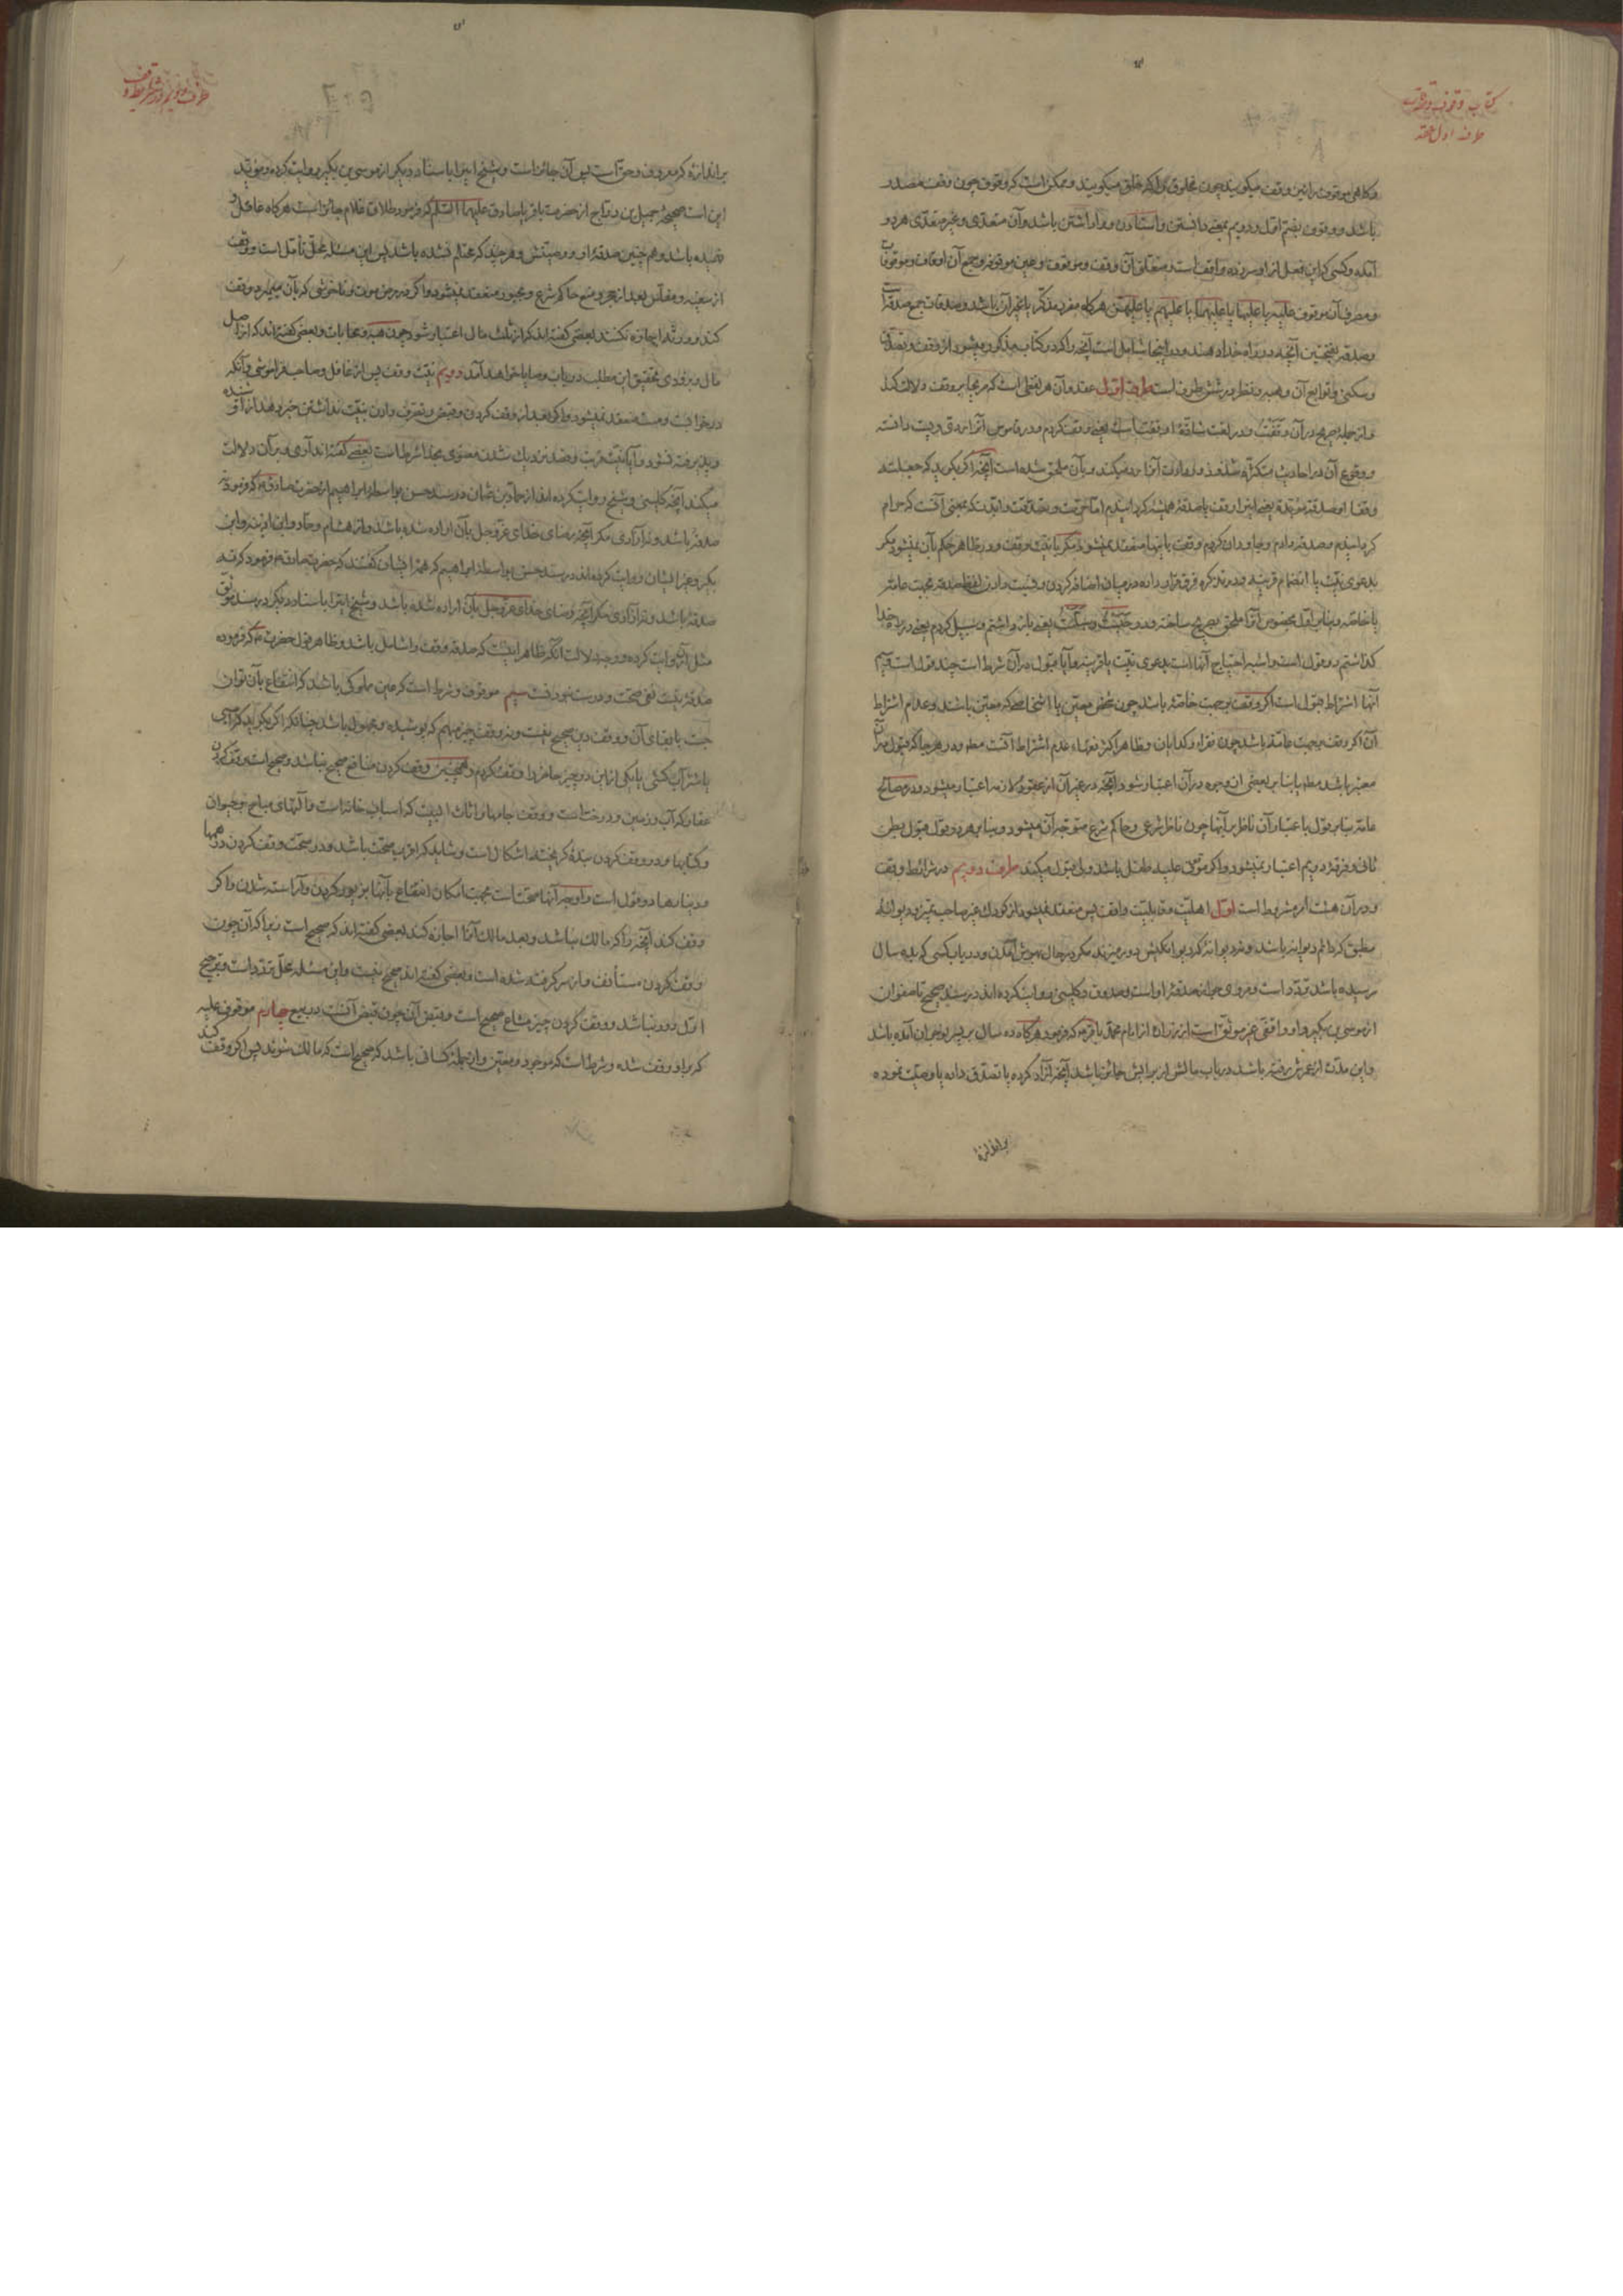 کتاب وقوف و صدقات
طرف اول عقد
و کاهی موقوف را نیز وقف میکویند چون مخلوق را که خلق میکویند و ممکن است که وقوف چون وقف مصدر
باشد و وقوف بضم اول و دویم بمعنی دانستن و استادن و وا داشتن باشد و آن متعدی و غیر متعدی هر دو
آمده و کسی که این فعل از او سر زده واقف است و متعلق آن وقف و موقوف و عین موقوفه و جمع آن اوقاف و موقوفات
و مصرف آن موقوف علیه یا علیها یا علیهما یا علیهم یا علیهن هرکاه مفرد مذکر یا غیر آن باشد و صدقات جمع صدقه است
و صدقه بفتحتین آنچه در راه خدا دهند و در اینجا شامل است آنچه را که در کتاب مذکور میشود از وقف و تصدق
و سکنی و توابع آن و هبه و نظر در شش طرف است طرف اول عقد و آن هر لفظی است که صریحا بر وقف دلالت کند
و از جمله صریح در آن وقفت و در لغت شاذه اوقفت است یعنی وقف کردم
و وقوع آن در احادیث متکثره شذوذ و بعادت آنرا رد میکند و بآن ملحق شده است آنچه اکر بکوید که جعلته
وقفا او صدقة مؤبدة یعنی این را وقف یا صدقه همیشه کردانیدم اما حرمت و تصدقت و ابدت که بمعنی آنست که حرام
کردانیدم و صدقه دادم و جاودان کردم وقف باینها منعقد نمیشود مکر با نیت وقف و در ظاهر حکم بآن نمیشود مکر
بدعوی نیت یا انضمام قرینه و در تذکره فرق قرار داده در میان اضافه کردن و نسبت دادن لفظ صدقه بجهت عامه
یا خاصه و بنا بر اول بخصوص آنرا ملحق بصریح ساخته و در حبست و سبلت یعنی باز داشتم و سبیل کردم یعنی در راه خدا
کذاشتم دو قول است و اشبه احتیاج آنها است بدعوی نیت یا قرینه و آیا قبول در آن شرط است چند قول است سیم
آنها اشتراط قبول است اکر وقف بر جهت خاصه باشد چون شخص معین یا اشخاصی که معین باشند و عدم اشتراط
آن اکر وقف بر جهت عامه باشد چون فقرا و کدایان و ظاهر اکثر فقهاء عدم اشتراط آنست مطه و در هر جا که قبول در آن
معتبر باشد مطه یا بنا بر بعضی از وجوه در آن اعتبار شود آنچه در غیر آن از عقود لازمه اعتبار میشود و در مصالح
عامه بنا بر قول باعتبار آن ناظر بر آنها چون ناظر شرعی و حاکم شرع متوجه آن میشود و بنا بر هر دو قول قبول بطن
ثانی و فرقه دویم اعتبار نمیشود و اکر موقوف علیه طفل باشد ولی قبول میکند طرف دویم در شرائط وقف
و در آن هشت امر شرط است اول اهلیت و قابلیت واقف پس منعقد نمیشود از کودک غیر صاحب تمیز و دیوانه
مطبق که دائم دیوانه باشد و نه دیوانه که دیوانکیش دوره میزند مکر در حال بهوش آمدن و در باب کسی که بده سال
رسیده باشد تردد است و مروی جواز صدقه او است و صدوق و کلینی روایت کرده اند در سند صحیح تا صفوان
از موسی بن بکیر و او واقفی غیر موثق است از زراره از امام محمد باقر ع که فرمود هرکاه ده سال بر پسر نوجوان آمده باشد
و این مدت از عمرش رفته باشد در باب مالش از برایش جائز باشد آنچه آزاد کرده یا تصدق داده یا وصیت نموده
بر اندازه
طرف دویم در شرایط وقف
بر اندازه که معروف و حق است پس آن جائز است و شیخ ایضا باسناد دیکر از موسی بن بکیر روایت کرده و مؤید
این است صحیحه جمیل بن دراج از حضرت باقر یا صادق علیهما السلم که فرمود طلاق غلام جائز است هرکاه عاقل و
فهمیده باشد و هم چنین صدقه او و وصیتش و هر چند که محتلم نشده باشد پس این مسئله محل تأمل است و وقف
از سفیه و مفلس بعد از حجر و منع حاکم شرع و مجبور منعقد نمیشود و اکر در مرض موت و ناخوشی که بآن میمیرد وقف
کند و ورثه اجازه نکنند بعضی کفته اند که از ثلث مال اعتبار شود چون هبه و محابات و بعضی کفته اند که از اصل
مال و بزودی تحقیق این مطلب در باب وصایا خواهد آمد دویم نیت وقف پس از غافل و صاحب فراموشی و آنکه
در خواب و مست منعقد نمیشود و اکر بعد از وقف کردن و قبض و تصرف دادن بنیت نداشتن خبر دهد از او شنیده
و پذیرفته نشود و آیا نیت قربت و قصد نزدیک شدن معنوی بخدا شرط است بعضی کفته اند آری و بر آن دلالت
میکند آنچه کلینی و شیخ روایت کرده اند از حماد بن عثمان در سند حسن بواسطه ابراهیم از حضرت صادق ع که فرمود نه
صدقه باشد و نه آزادی مکر آنچه رضای خدای عز و جل بآن اراده شده باشد و از هشام و حماد و ابن اذینه و ابن
بکیر و غیر ایشان روایت کرده اند در سند حسن بواسطه ابراهیم که همه ایشان کفتند که حضرت صادق ع فرمود که نه
صدقه باشد و نه آزادی مکر آنچه رضای خدای عز و جل بآن اراده شده باشد و شیخ ایضا باسناد دیکر در سند موثق
مثل آنرا روایت کرده و وجه دلالت آنکه ظاهر اینست که صدقه وقف را شامل باشد و ظاهر قول حضرت ع که فرموده
صدقه نیست نفی صحت و درست نبودنست سیم موقوف و شرط است که عین مملوکی باشد که انتفاع بآن توان
جست با بقای آن و وقف دین صحیح نیست و نه وقف چیز مبهم که پوشیده و مجهول باشد چنانکه اکر بکوید که اسبی
یا شتر آب کشی یا یکی از این دو چیز حاضر را وقف کردم و همچنین وقف کردن منافع صحیح نباشد و صحیح است وقف کردن
عقار که آب و زمین و درخت است و وقف جامها و اثاث البیت که اسباب خانه است و آلتهای مباح و حیوان
و کتابها و در وقف کردن بنده کریخته اشکال است و شاید که اقرب صحت باشد و در صحت وقف کردن درهمها
و دینارها دو قول است و اوجه آنها صحتست بجهت امکان انتفاع بآنها بزیور کردن و آراسته شدن و اکر
وقف کند آنچه را که مالک نباشد و بعد مالک آنرا اجازه کند بعضی کفته اند که صحیح است زیرا که آن چون
وقف کردن مستأنف و از سر کرفته شده است و بعضی کفته اند صحیح نیست و این مسئله محل تردد است و ترجیح
اول دور نباشد و وقف کردن چیز مشاع صحیح است و قبض آن چون قبض آنست در بیع چهارم موقوف علیه
که بر او وقف شده و شرط است که موجود و معین و از جمله کسانی باشد که صحیح است که مالک شوند پس اکر وقف کند